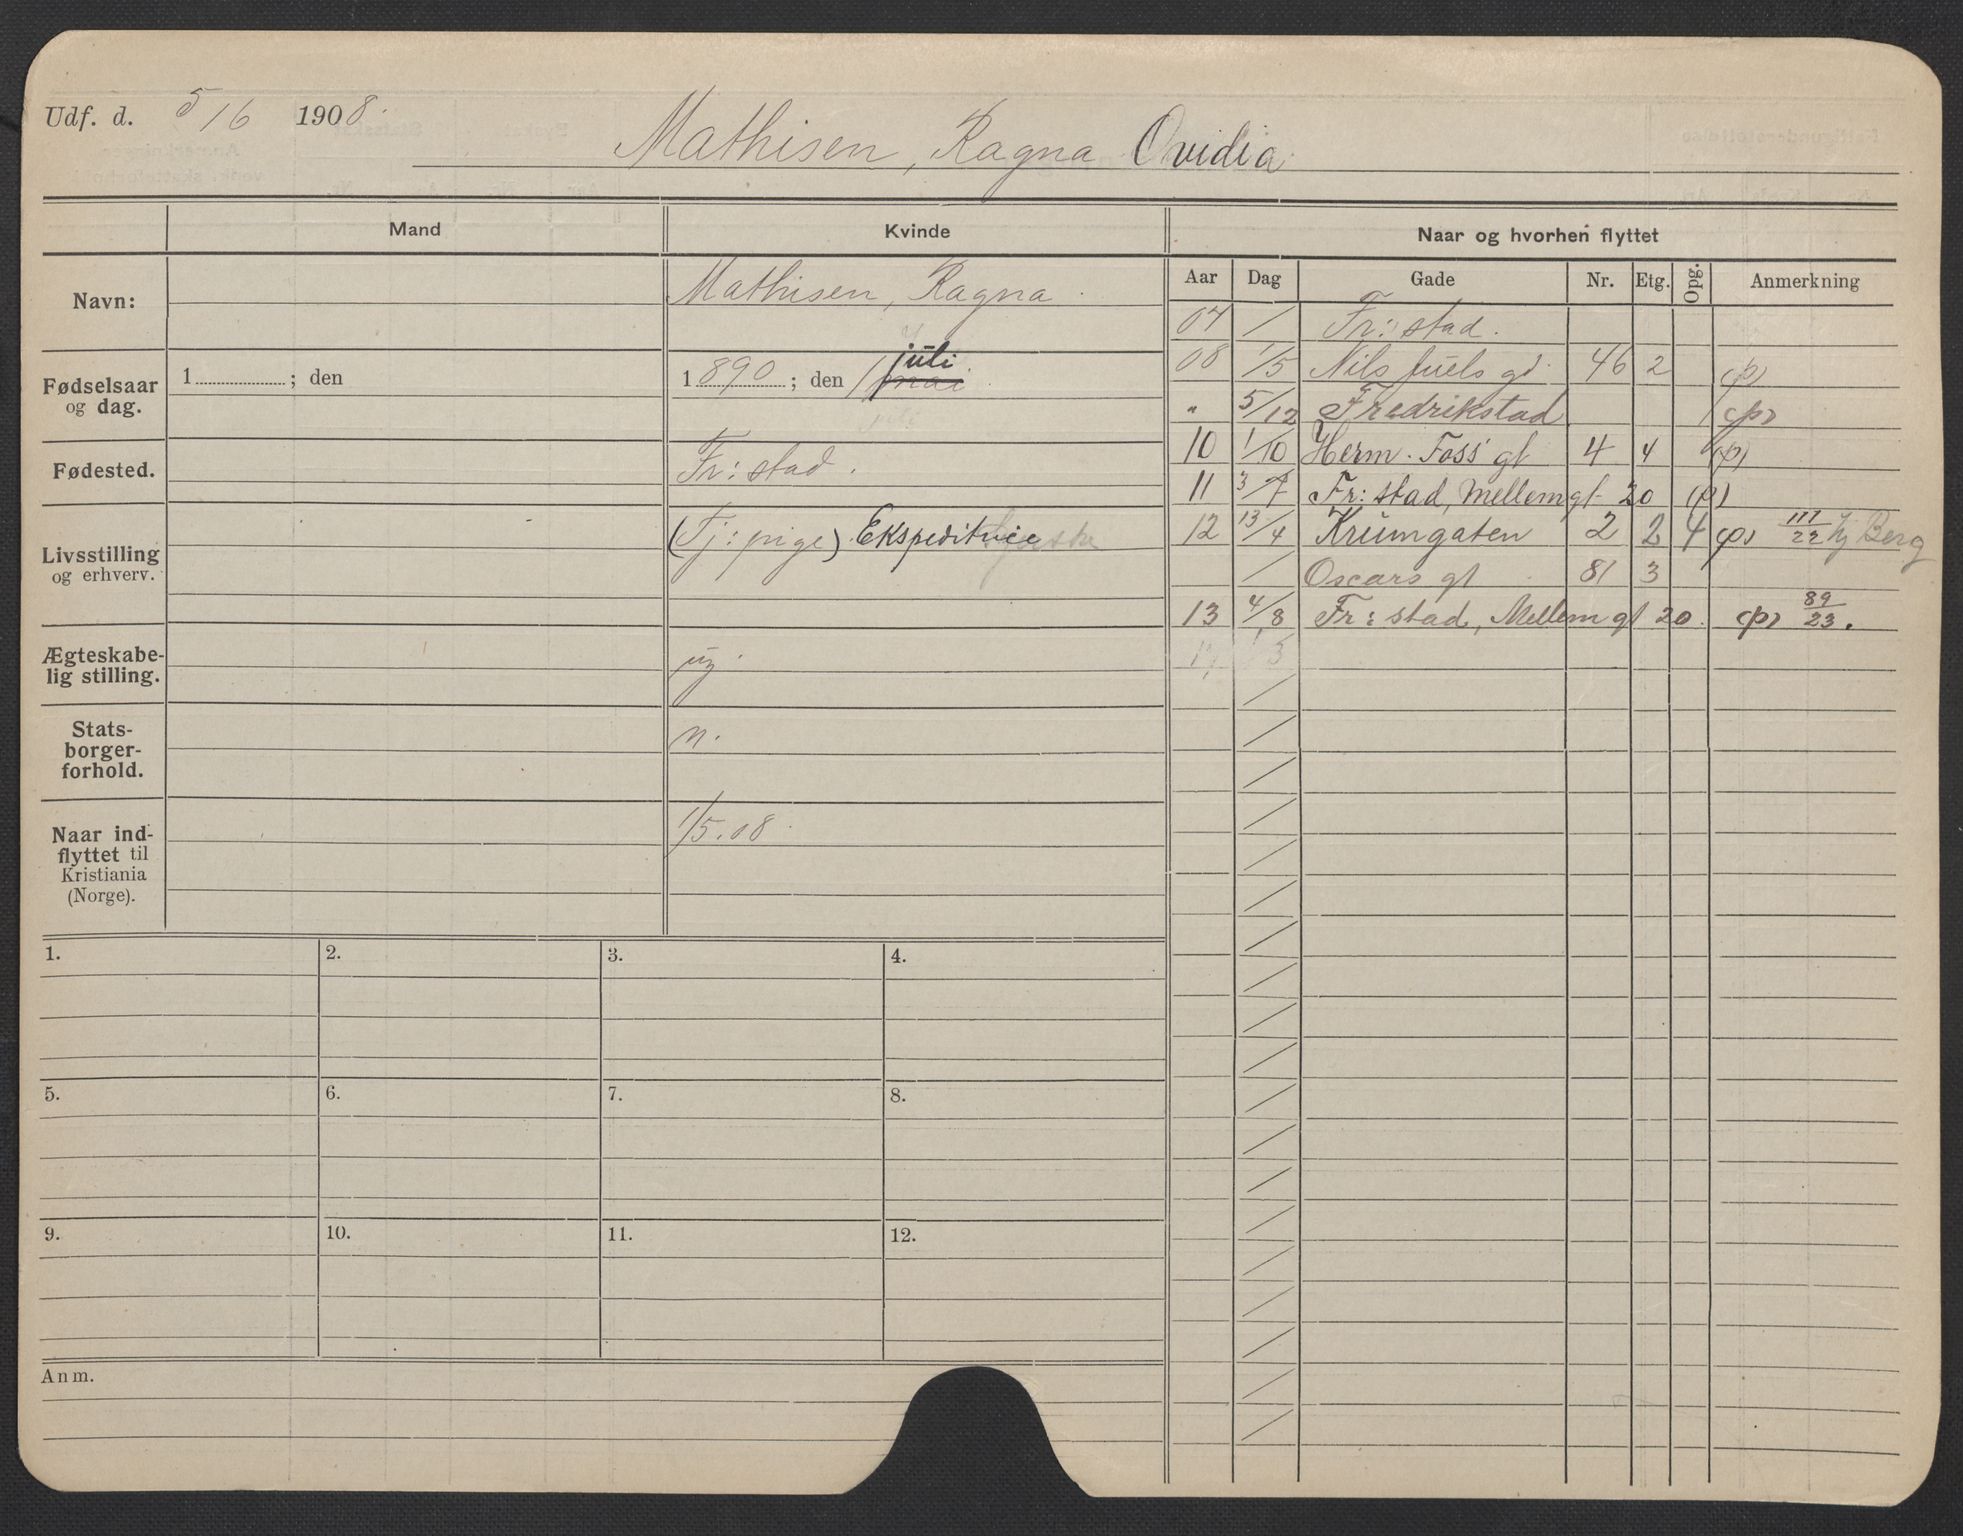 Udf. d. 5/6 1908.
Mathisen, Ragna Ovidia
Mand
Kvinde
Naar og hvorhen flyttet
Navn:
Mathisen, Ragna.
Aar Dag Gade Nr. Etg. Opg. Anmerkning
04 / Fr: stad.
Fødselsaar og dag.
1 ; den
1890 ; den 1 mai juli
08 1/5 Nils Juels gt. 46 2 (p)
" 5/12 Fredrikstad (p)
Fødested.
Fr: stad.
10 1/10 Herm. Foss' gt 4 4 (p)
11 3/7 Fr: stad, Mellemgt 20 (p)
Livsstilling og erhverv.
(Tj: pige) Ekspeditrice
12 13/4 Krumgaten 2 2 4 (p) 111/22 Hj Berg
/ Oscars gt 81 3
13 4/8 Fr: stad, Mellemgt 20. (p) 89/23.
Ægteskabe-
lig stilling.
ug.
Stats-
borger-
forhold.
n.
Naar ind-
flyttet til
Kristiania
(Norge).
1/5.08.
1. 2. 3. 4.
5. 6. 7. 8.
9. 10. 11. 12.
Anm.